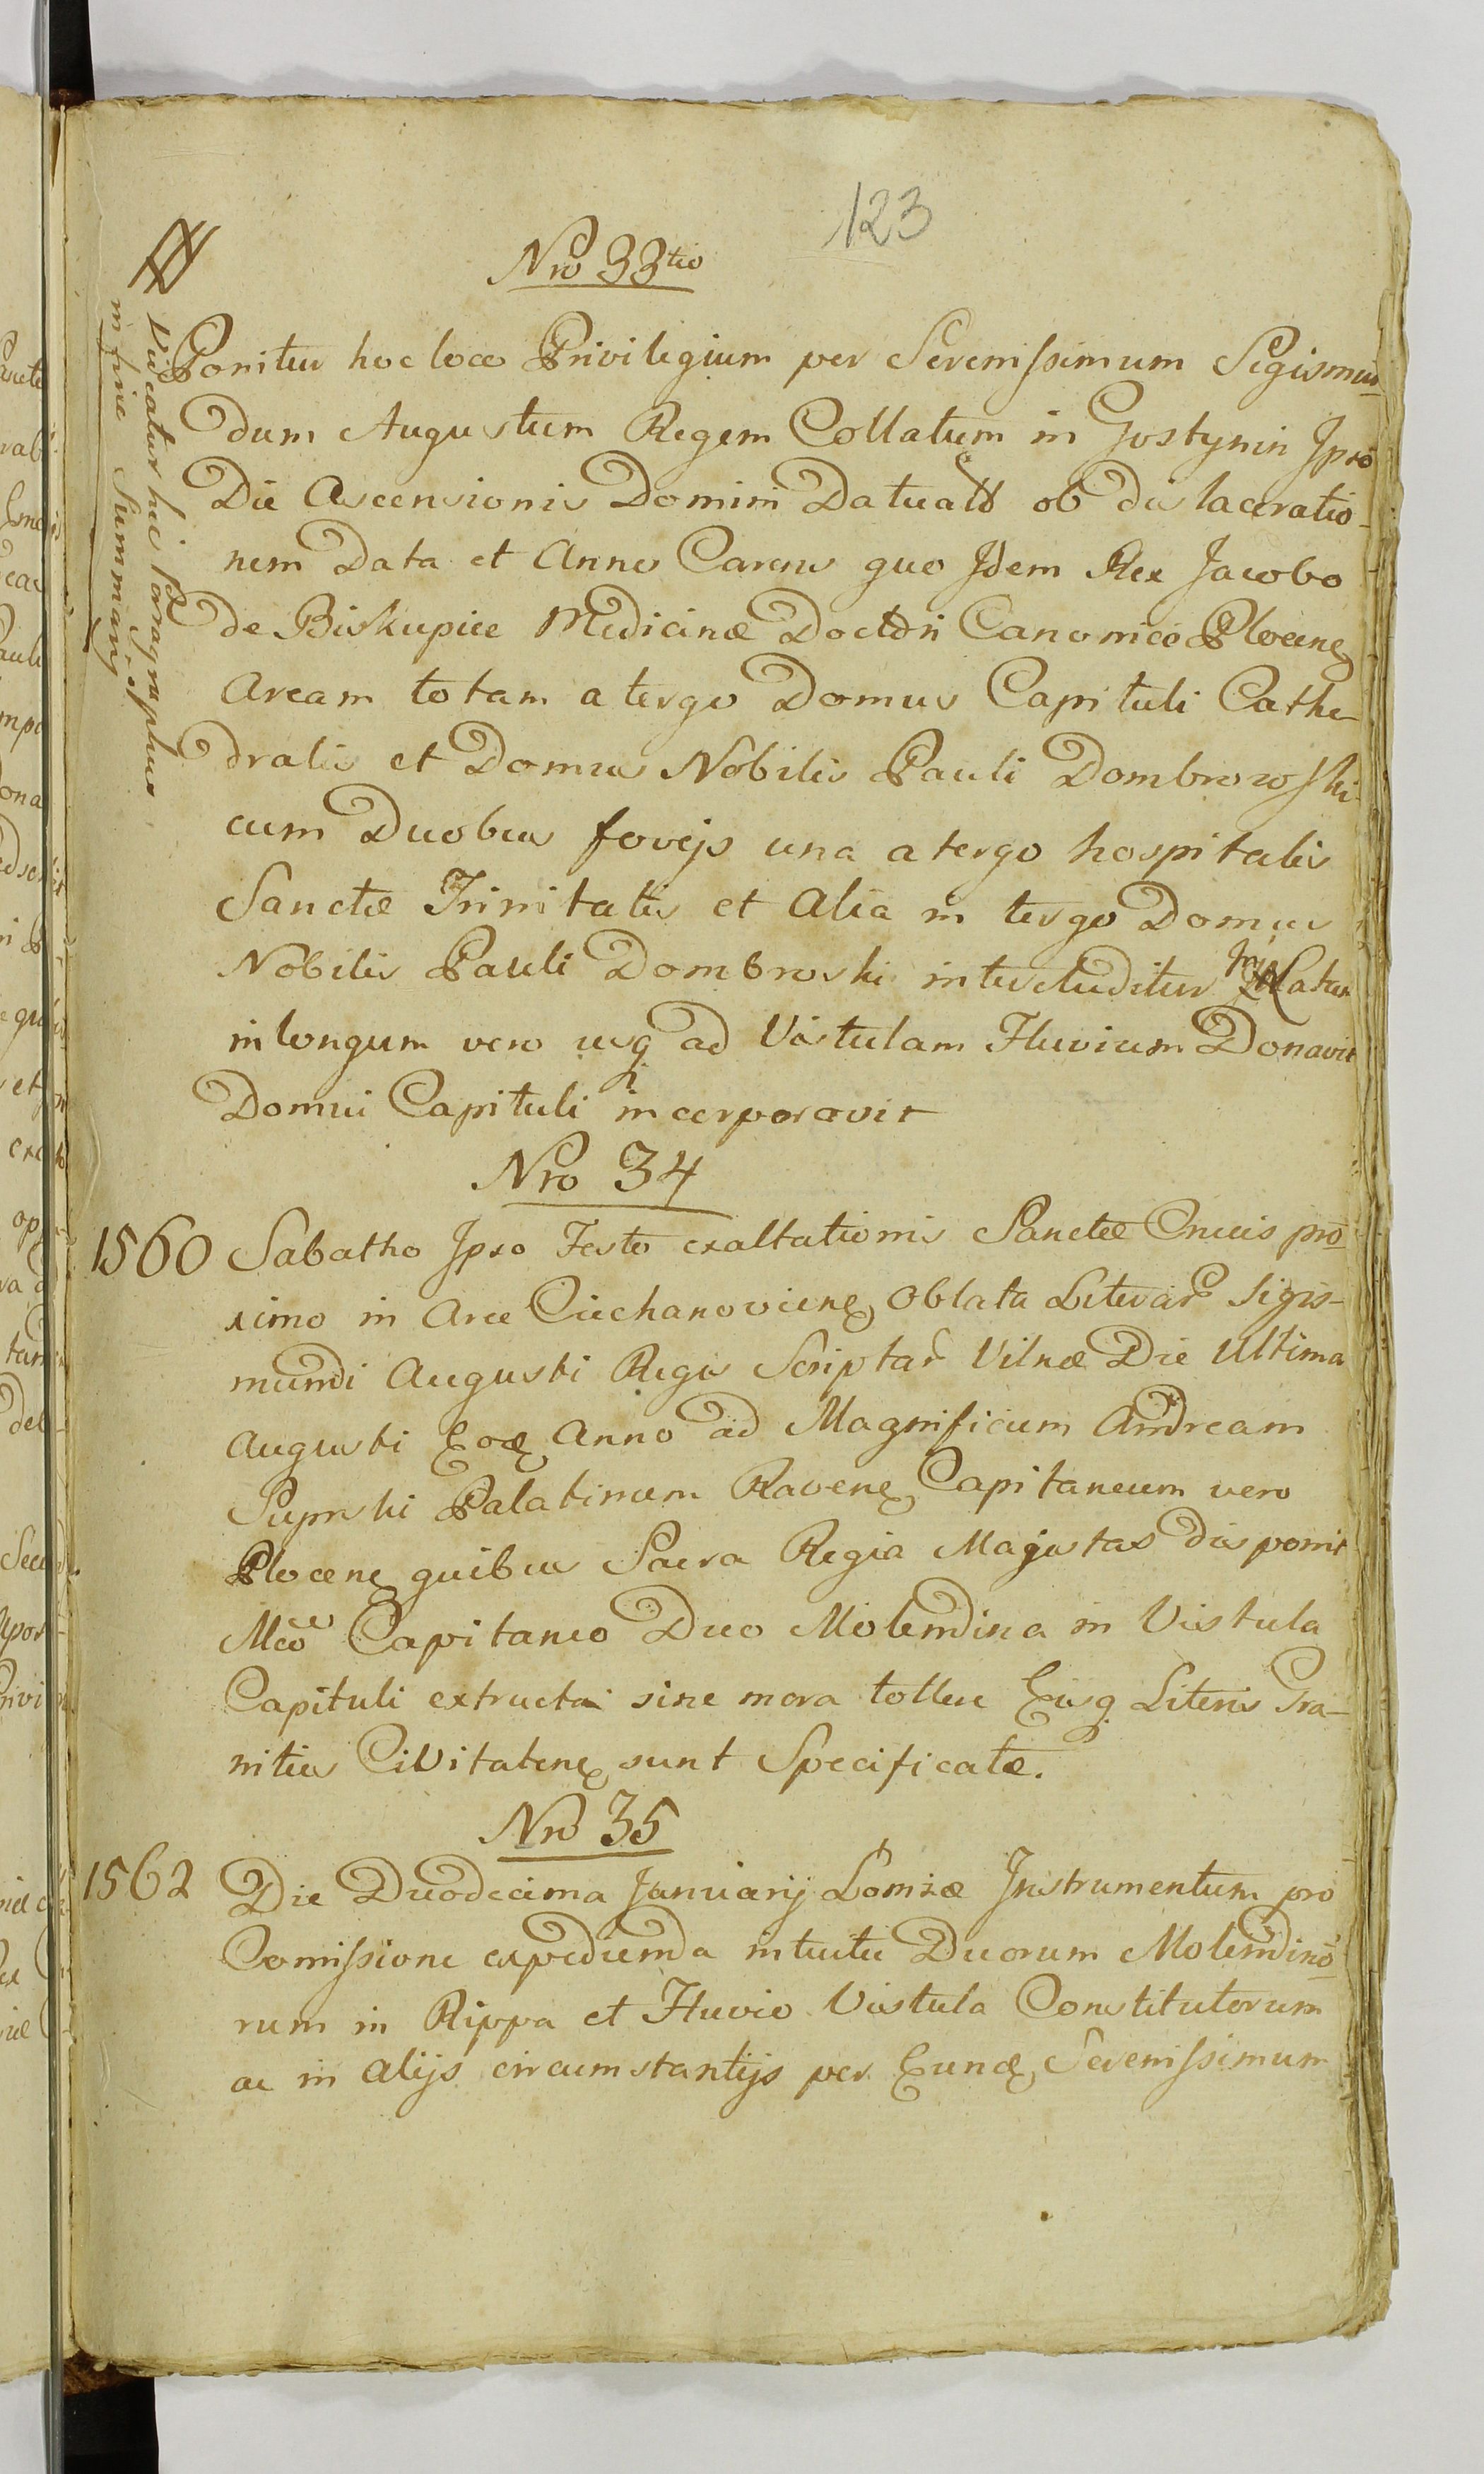 123
Nro 33tio
Videatur hic Parragraphus
in fine Summarij
Ponitur hoc loco Privilegium per Serenissimum Sigismun-
dum Augustum Regem Collatum in Gostynin Ipso
Die Ascensionis Domini ob dis laceratio-
nem Data et Anno Carens quo Idem Rex Jacobo
de Biskupice Medicinæ Doctori Canonico Plocen
Aream totam a tergo Domus Capituli Cathe-
dralis et Domus Nobilis Pauli Dombrowski
cum Duobus fovejs una a tergo hospitalis
Sanctæ Trinitatis et Alia in tergo Domus
Nobilis Pauli Dombroski intercluditur
in longum vero usq ad Vistulam Fluvium Donavit
Domui Capituli incorporavit
Nro 34
1560 Sabatho Ipso Festo exaltationis Sanctæ Crucis pro-
ximo in Arce Ciechanoviens Oblata Literar Sigis-
mundi Augusti Regis Scriptar Vilnæ Die Ultima
Augusti Eod Anno ad Magnificum Andream
Palatinum Ravens Capitaneum vero
Plocens quibus Sacra Regia Majestas disponit
Mco Capitaneo Duo Molendina in Vistula
Capituli extructa sine mora tollere Eisq Literis Gra-
nities Civitatens sunt Specificatæ.
Nro 35
1562 Die Duodecima Januarij Lomzæ Instrumentum pro
Comissione expedienda intuitu Duorum Molendino-
rum in Rippa et Fluvio Vistula Constitutorum
ac in alijs circumstantijs per Eund Serenissimum